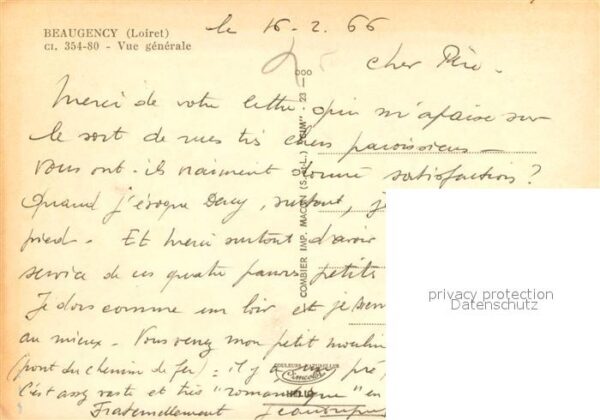 BEAUGENCY (Loiret)
CI. 354-80 - Vue générale
le 16-2.66
Cher Père -
Merci de votre lettre qui m'apaise sur
le sort de mes très chers paroissiens -
Vous ont-ils vraiment donné satisfaction ?
Quand j'évoque surtout, je
pied. Et merci surtout d'avoir
service de ces quatre pauvres petits
Je dors comme un loir et je
au mieux. Vous venez mon petit moulin
(pont du chemin de fer) : il y a pré,
C'est assez vaste et très "romantique" en
Fraternellement
COMBIER IMP. MACON (S.-&-L.) "CIM" 23 -
COULEURS NATURELLES
HELIO
privacy protection
Datenschutz